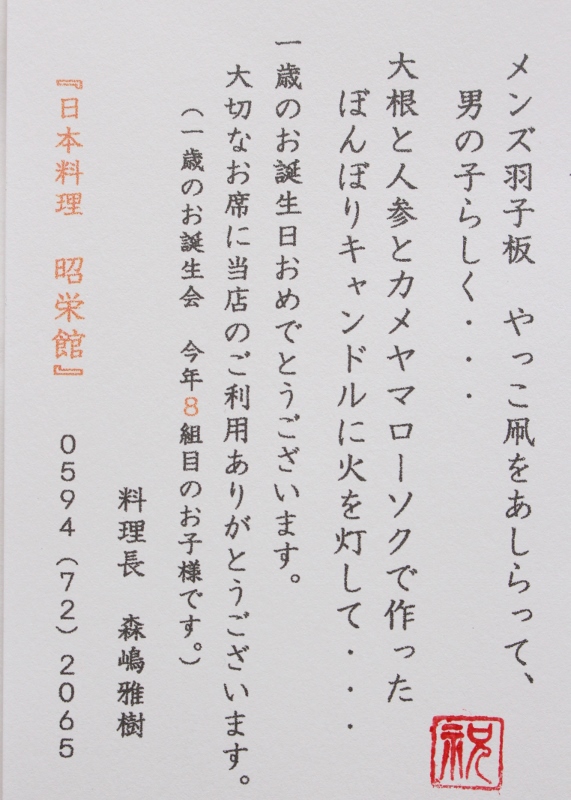 メンズ羽子板　やっこ凧をあしらって、
男の子らしく・・・
大根と人参とカメヤマローソクで作った
ぼんぼりキャンドルに火を灯して・・・
一歳のお誕生日おめでとうございます。
大切なお席に当店のご利用ありがとうございます。
（一歳のお誕生会　今年８組目のお子様です。）
料理長　森嶋雅樹
『日本料理　昭栄館』　０５９４（７２）２０６５
祝